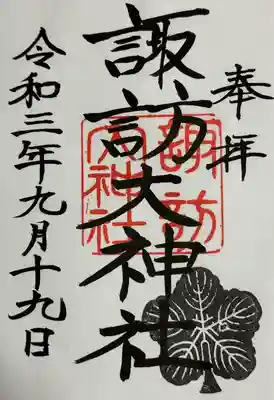 奉拝
諏訪大神社
諏訪大神社
令和三年九月十九日